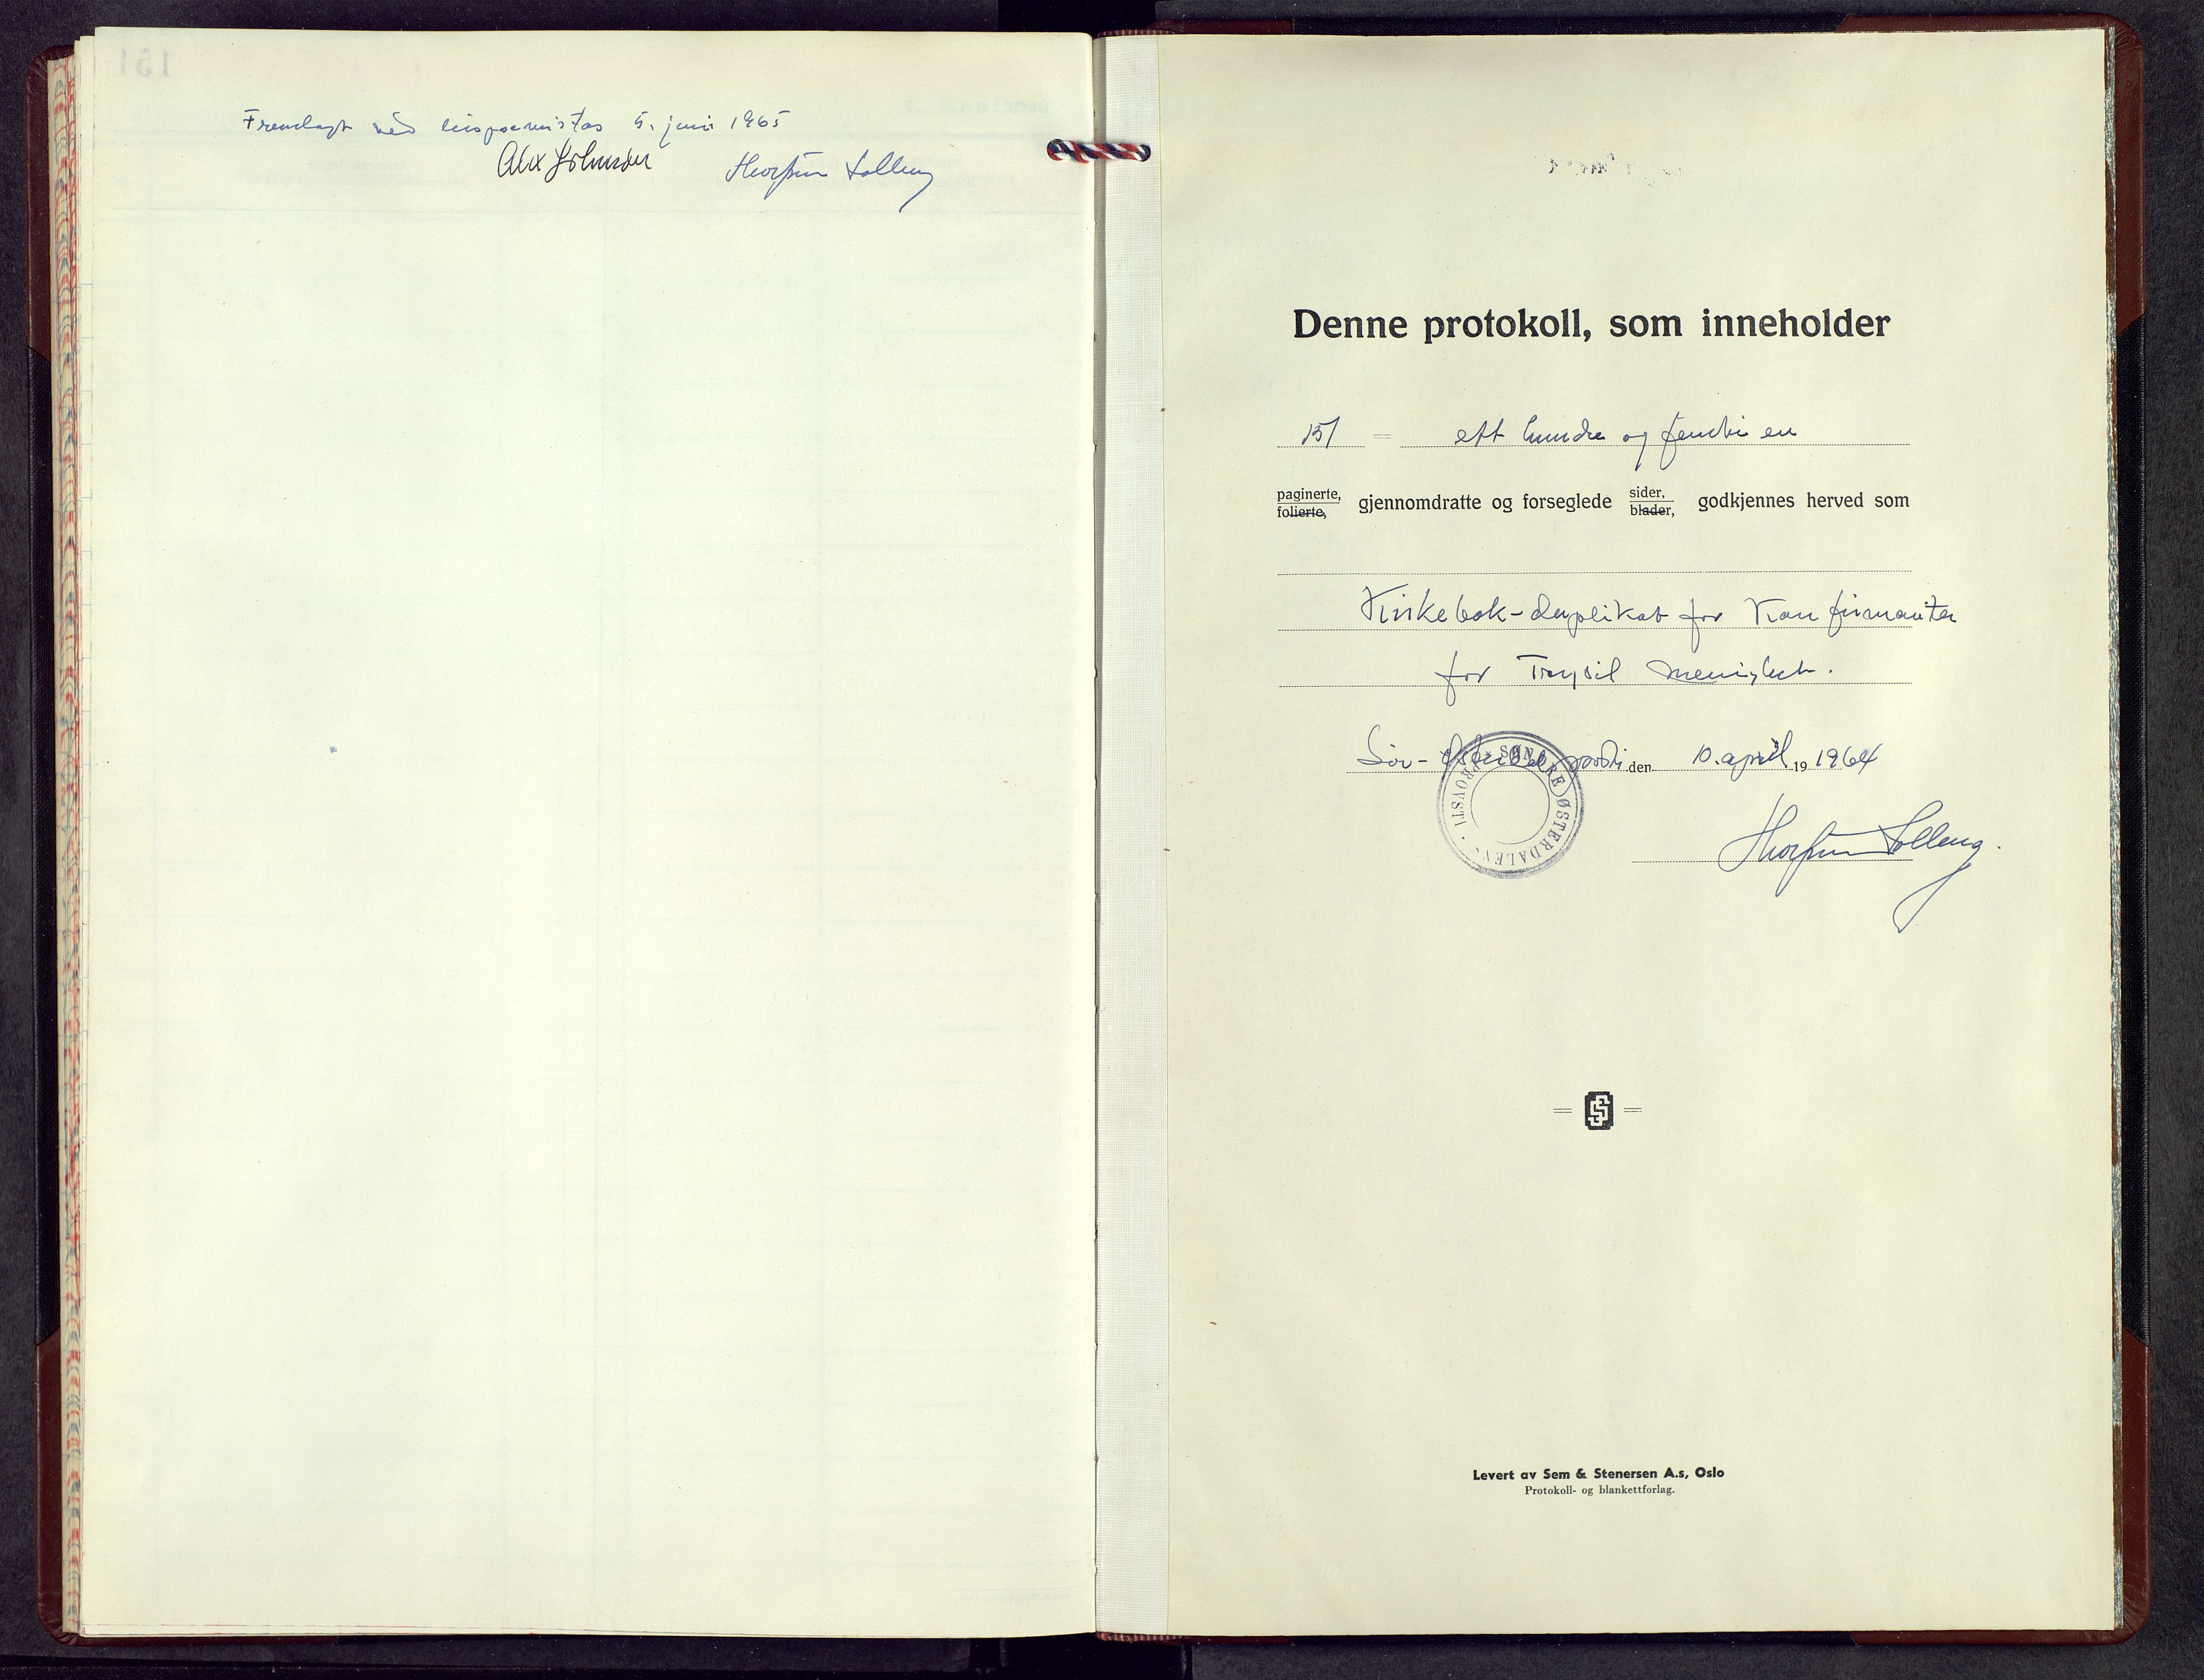 Fremlagt ved bispevisitas 5. juni 1965
Alex Johnson Thorfinn Solberg
Denne protokoll, som inneholder
151 = ett hundre og femti en
paginerte,
folierte,
gjennomdratte og forseglede
sider,
blader,
godkjennes herved som
Kirkebok-duplikat for Konfirmanter
for Trysil menighet.
Sør-Østerdal prosti den 10. april 19 1964
SØNDRE ØSTERDALEN PROVSTI
Levert av Sem & Stenersen A.s, Oslo
Protokoll- og blankettforlag.